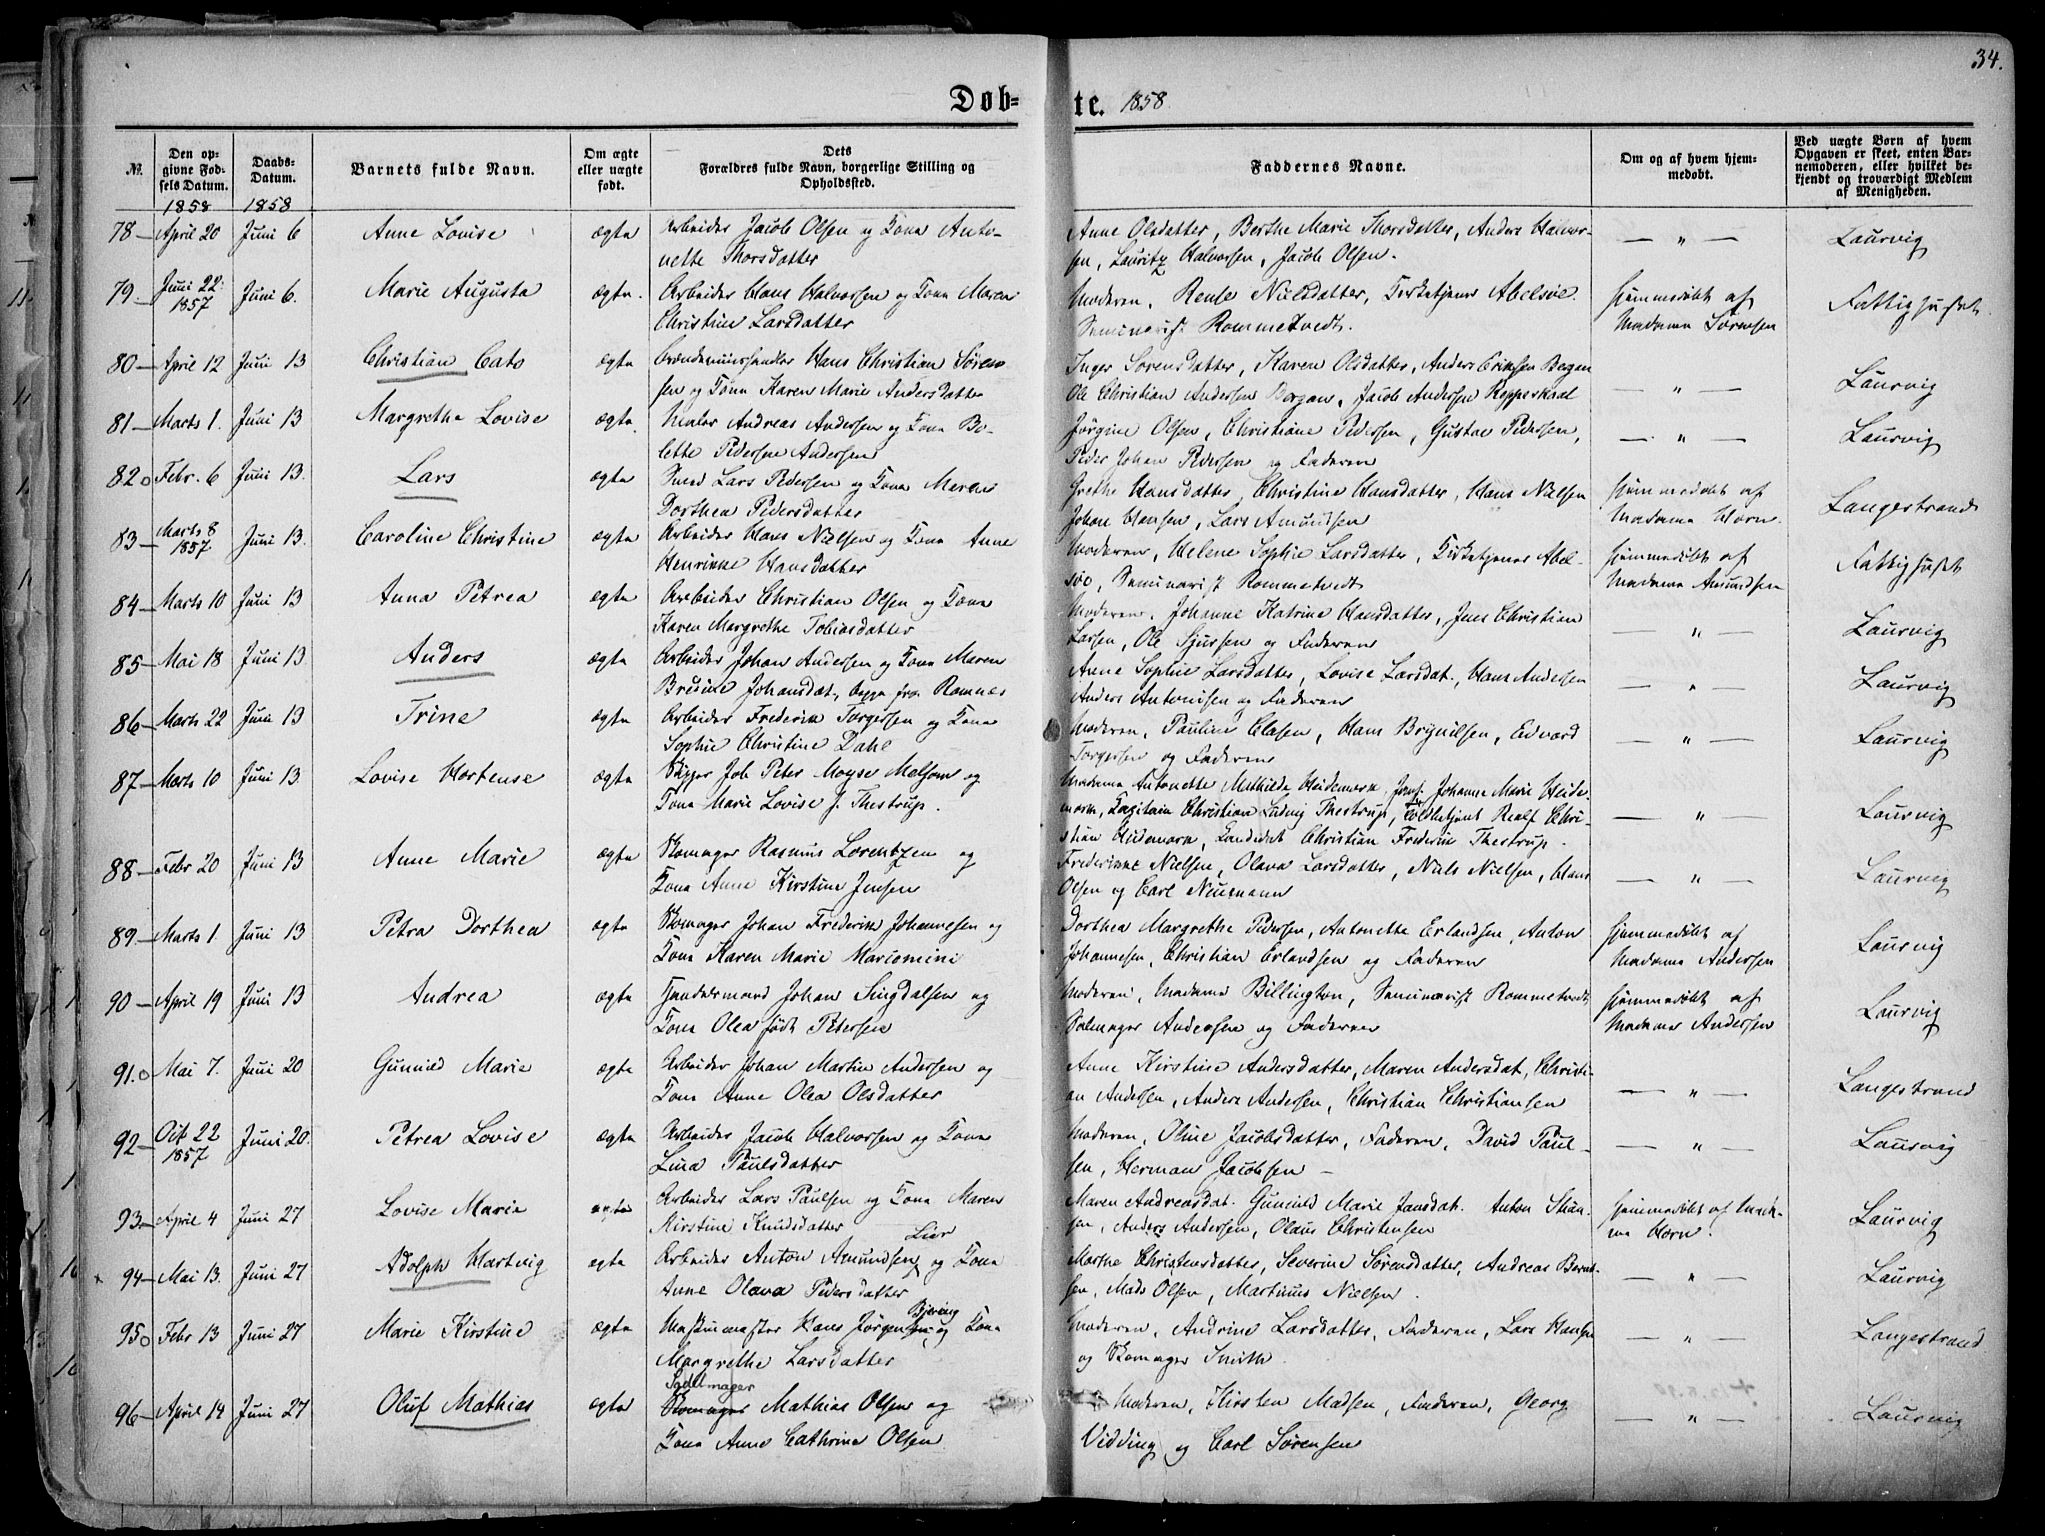 34.
Døb=
te. 1858.
№
Den op=
givne Fød=
sels Datum.
1858
Daabs=
Datum.
1858
Barnets fulde Navn.
Om ægte
eller uægte
født.
Dets
Forældres fulde Navn, borgerlige Stilling og
Opholdssted.
Faddernes Navne.
Om og af hvem hjem=
medøbt.
Ved uægte Børn af hvem
Opgaven er skeet, enten Bar=
nemoderen, eller hvilket be=
kjendt og troværdigt Medlem
af Menigheden.
78 — April 20 Juni 6 Anne Lovise ægte Arbeider Jacob Olsen og Kona Anto-
nette Thorsdatter
Anne Olsdatter, Berthe Marie Thorsdatter, Anders Halvor-
sen, Lauritz Halvorsen, Jacob Olsen.
— " — Laurvig
79 — Juni 22. 1857 Juni 6. Marie Augusta ægte. Arbeider Hans Halvorsen og Kona Maren
Christine Larsdatter
Moderen, Kirketjener Abelsøe.
Seminarist Rommetvedt.
hjemmedøbt af
Madame Sørensen
Fattighuset.
80 — April 12 Juni 13 Christian Cato ægte Hans Christian Søren-
sen og Kona Karen Marie Andersdatter
Inger Sørensdatter, Karen Olsdatter, Anders Eriksen Bergan
Ole Christian Andersen Bergan, Jacob Andersen
— " — Laurvig
81 — Marts 1. Juni 13 Margrethe Lovise ægte. Maler Andreas Andersen og Kona Bo-
lette Pedersen Andersen
Jørgine Olsen, Christiane Pedersen, Gustav Pedersen,
Peder Johan Pedersen og Faderen
— " — Laurvig
82 o Febr. 6 Juni 13. Lars ægte Smed Lars Pedersen og Kona Maren
Dorthea Pedersdatter
Grethe Hansdatter, Christine Hansdatter, Hans Nielsen
Johan Hansen, Lars Amundsen
hjemmedøbt af
Madame Horn.
Langestrand
83 — Marts 8 1857 Juni 13. Caroline Christine ægte Arbeider Hans Nielsen og Kona Anne
Henrikke Hansdatter
Moderen, Helene Sophie Larsdatter, Kirketjener Abel-
søe, Seminarist Rommetvedt
hjemmedøbt af
Madame Amundsen
Fattighuset
84 — Marts 10 Juni 13 Anna Petrea ægte Arbeider Christian Olsen og Kona
Karen Margrethe Tobiasdatter
Moderen, Johanne Katrine Hansdatter, Jens Christian
Larsen, Ole Sjursen og Faderen
— " — Laurvig
85 — Mai 18 Juni 13 Anders ægte Arbeider Johan Andersen og Kona Maren
Bresine Johansdat., begge fra Ramnes
Anne Sophie Larsdatter, Lovise Larsdat., Hans Andersen
Anders Antonisen og Faderen
— " — Laurvig
86 — Marts 22 Juni 13 Trine ægte Arbeider Frederik Torgersen og Kona
Sophie Christine Dahl
Moderen, Pauline Clasen, Hans Brynilsen, Edvard
Torgersen og Faderen
— " — Laurvig
87 — Marts 10 Juni 13. Lovise Hortense ægte Skipper Job Peter Moyse Melsom og
Kona Marie Lovise f. Thestrup.
Madame Antonette Mathilde Heidemark, Jomf. Johanne Marie Heide-
mark, Kapitain Christian Ludvig Thestrup, Toldbetjent Realf Chri-
stian Heidemark, Kandidat Christian Frederik Thestrup.
— " — Laurvig
88 — Febr 20 Juni 13 Anne Marie ægte Skomager Rasmus Lorentzen og
Kona Anne Kirstine Jensen
Frederikke Nielsen, Olava Larsdatter, Niels Nielsen, Hans
Olsen og Carl Neumann
— " — Laurvig
89 — Marts 1. Juni 13 Petra Dorthea ægte Skomager Johan Frederik Johannesen og
Kona Karen Marie Marcomini
Dorthea Margrethe Pedersen, Antonette Erlandsen, Anton
Johannesen, Christian Erlandsen og Faderen
hjemmedøbt af
Madame Andersen
Laurvig
90 — April 19 Juni 13 Andrea ægte Handelsmand Johan Singdalsen og
Kona Olea født Petersen
Moderen, Madame Billington, Seminarist Rommetvedt
Salmager Andersen og Faderen
hjemmedøbt af
Madame Andersen
Laurvig
91. o Mai 7. Juni 20 Gunnild Marie ægte Arbeider Johan Martin Andersen og
Kona Anne Olea Olsdatter
Anne Kirstine Andersdatter, Maren Andersdat, Christi-
an Andersen, Anders Andersen, Christian Christiansen
— " — Langestrand
92 — Oct 22 1857 Juni 20. Petrea Lovise ægte Arbeider Jacob Halvorsen og Kona
Lina Paulsdatter
Moderen, Oline Jacobsdatter, Faderen, David Paul-
sen, Herman Jacobsen —
— " — Laurvig
93 — April 4 Juni 27 Lovise Maria ægte Arbeider Lars Paulsen og Kona Maren
Kirstine Knudsdatter
Maren Andreasdat. Gunnild Marie Jansdat. Anton
sen, Anders Andersen, Olaus Christensen
hjemmedøbt af Mada-
me Horn.
Laurvig
x 94 — Mai 13. Juni 27 Adolph Hartvig ægte Arbeider Anton Amundsen Lier og Kona
Anne Olava Pedersdatter
Marthe Christensdatter, Severine Sørensdatter, Andreas Bernt-
sen, Mads Olsen, Martinus Nielsen.
— " — Laurvig
95 o Febr 13 Juni 27 Marie Kirstine ægte Maskinmester Hans Jørgensen Bjering og Kona
Margrethe Larsdatter
Moderen, Andrine Larsdatter, Faderen, Lars Hansen
og Skomager Smith.
— " — Langestrand
96 — April 14 Juni 27 Oluf Mathias ægte Sadelmager
Skomager Mathias Olsen og
Kona Anne Cathrine Olsen
Moderen, Kirsten Madsen, Faderen, Georg
Vidding og Carl Sørensen
— " — Laurvig